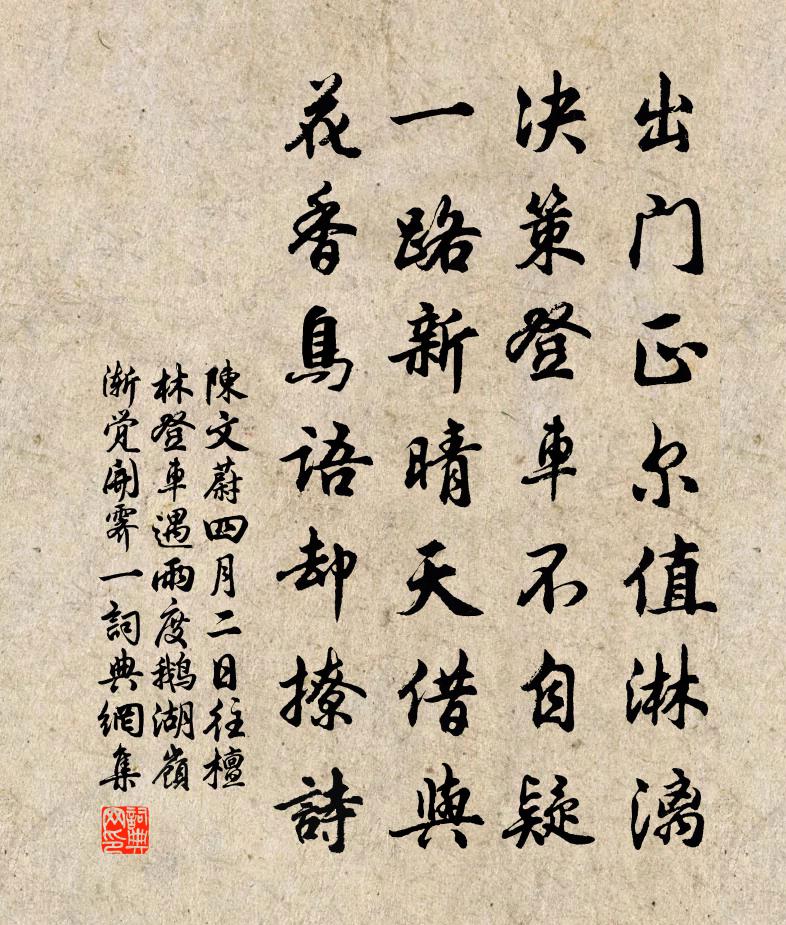 出门正尔值淋漓
决策登車不自疑
一路新晴天借與
花香鳥語却撩詩
陳文蔚四月二日往檀
林登車遇雨度鹅湖嶺
渐觉開霁一詞典網集
詞典网印